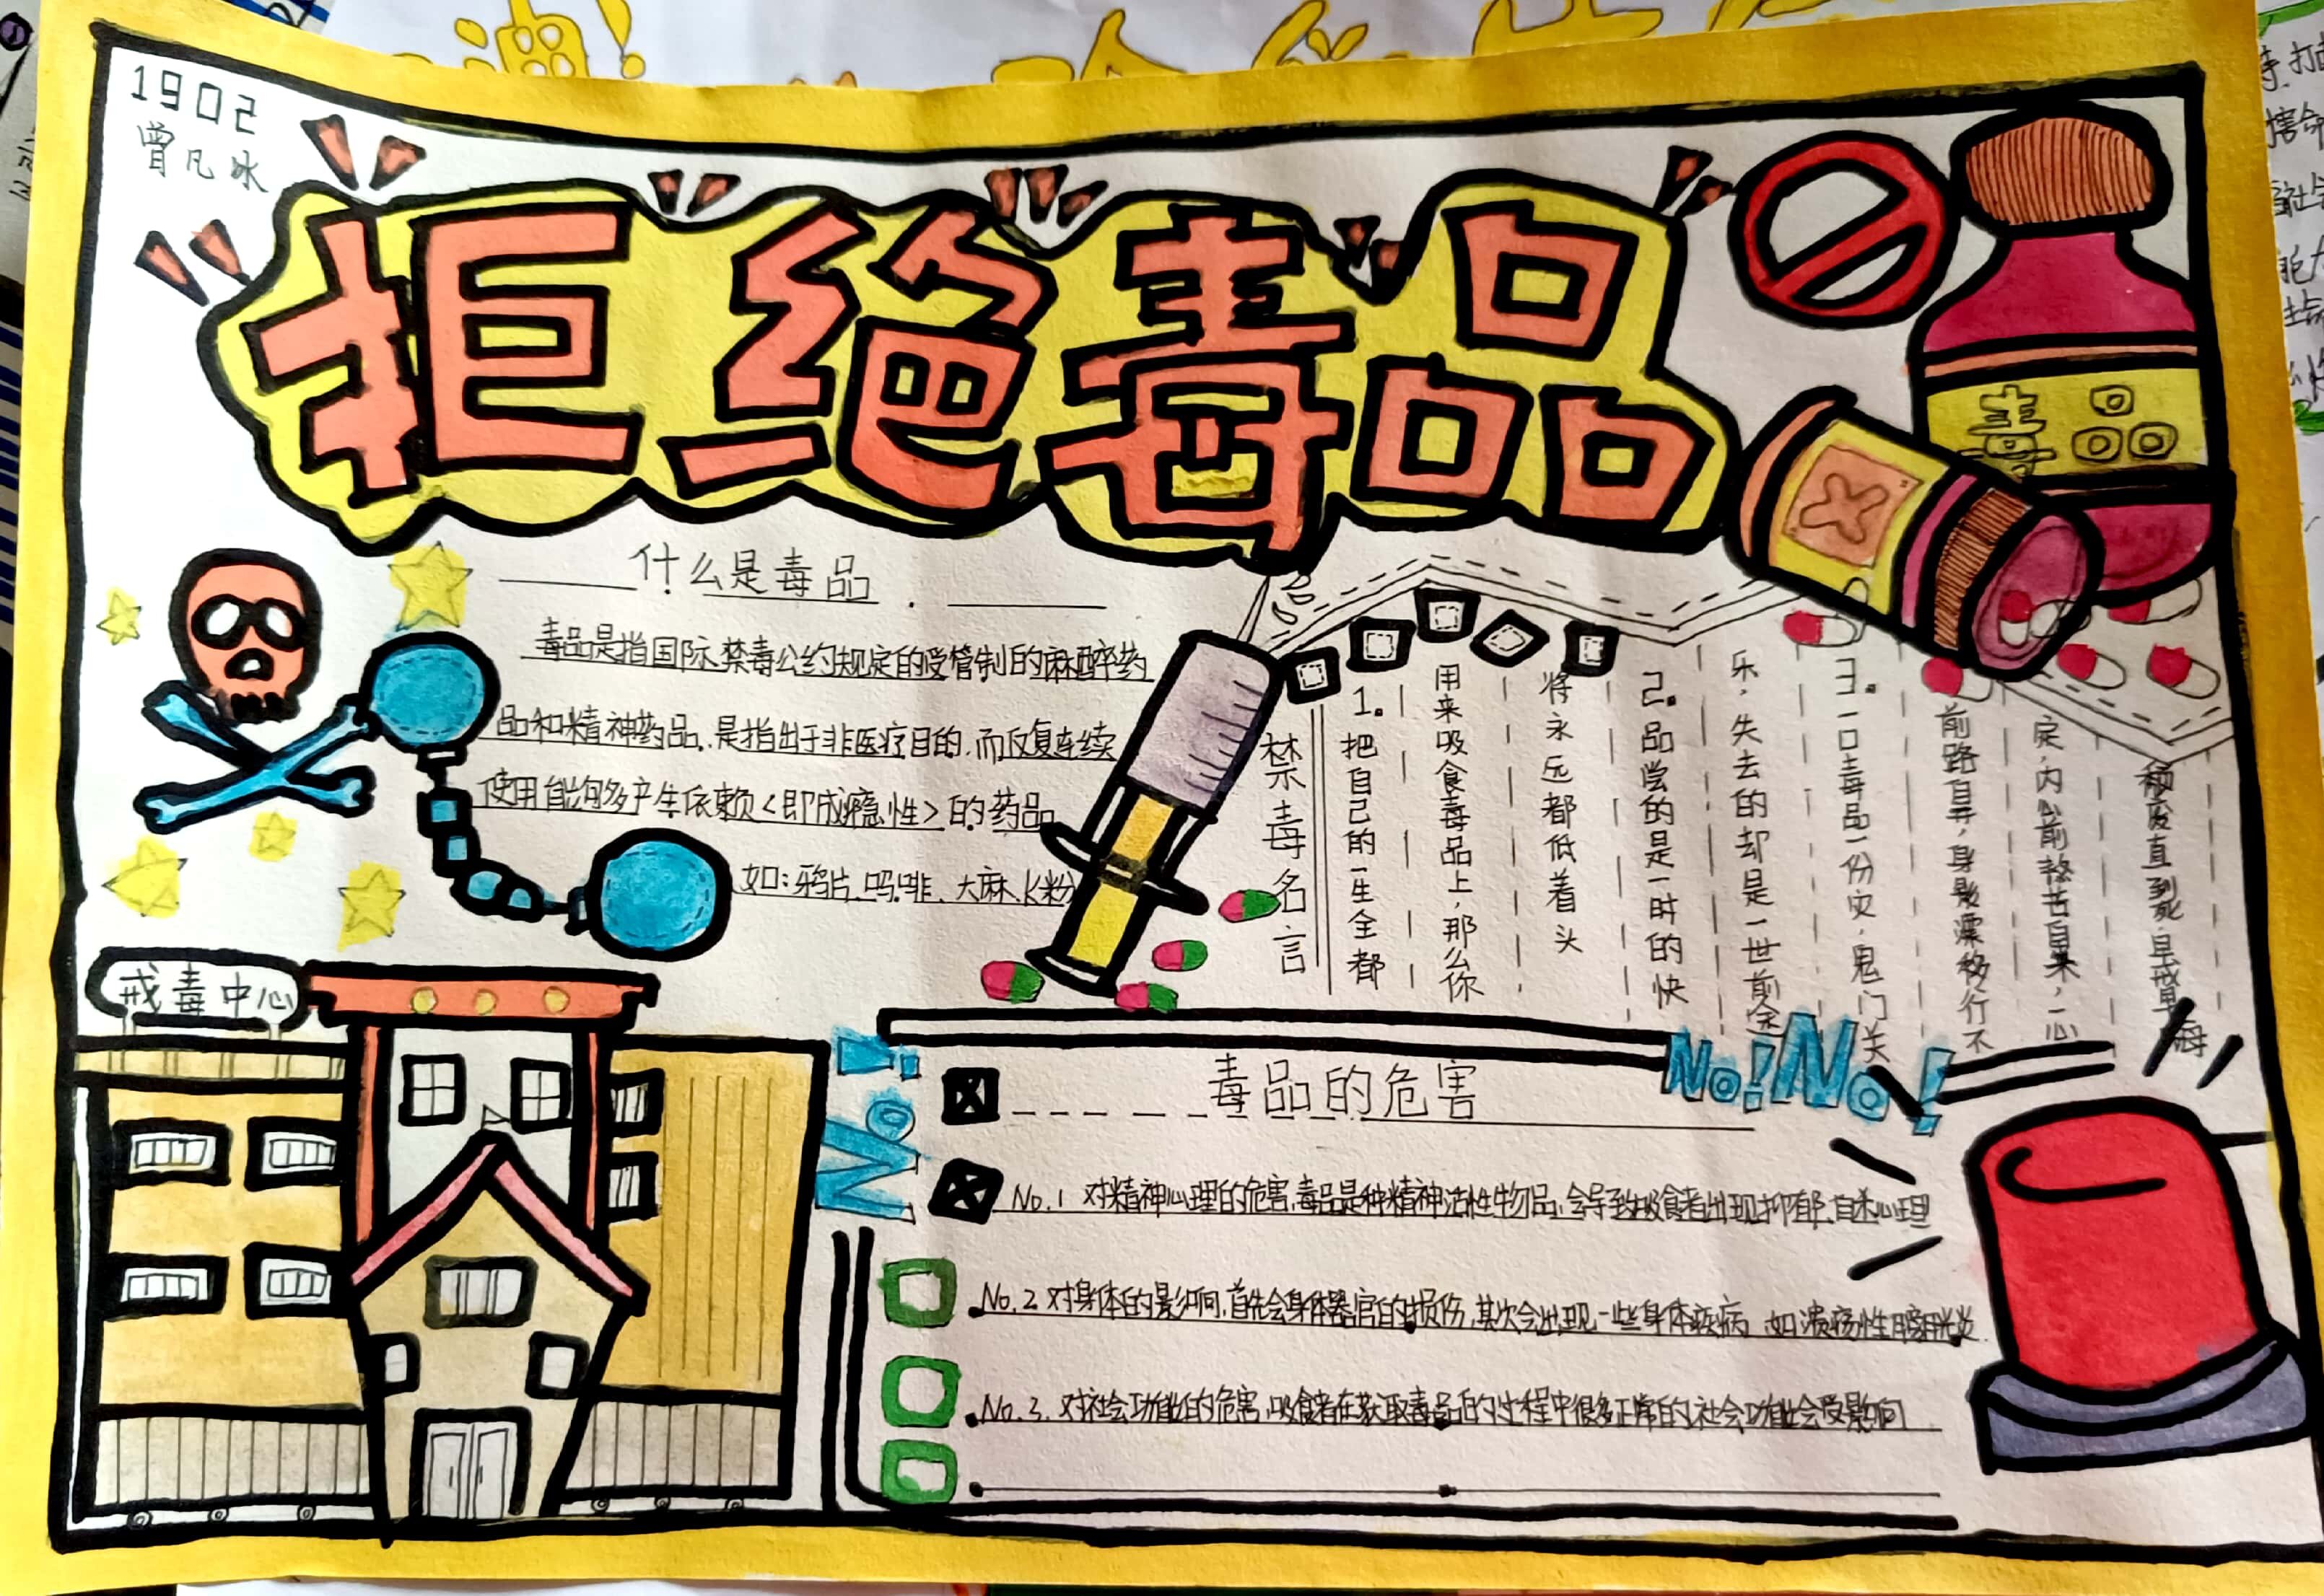 1902
曾凡冰
拒绝毒品
毒品
什么是毒品
毒品是指国际禁毒公约规定的受管制的麻醉药
品和精神药品,是指出于非医疗目的,而反复连续
使用能够多产生依赖<即成瘾性>的药品
如:鸦片、吗啡、大麻、K粉
禁毒名言
1。把自己的一生全都
用来吸食毒品上,那么你
将永远都低着头
2。品尝的是一时的快
乐,失去的却是一世前途
3。一口毒品一份灾,鬼门关
前路自弄,身影漂移行不
定,内心前熬苦自果,一心
直到死,早戒早
戒毒中心
No!
No!No!
毒品的危害
No.1 对精神心理的危害,毒品是种精神活性物品,会导致吸食者出现抑郁、自杀心理
No.2 对身体的影响,首先会身体器官的损伤,其次会出现一些身体疾病 如溃疡性膀胱炎
No.3. 对社会功能的危害,吸食者在获取毒品的过程中很多正常的社会功能会受影响